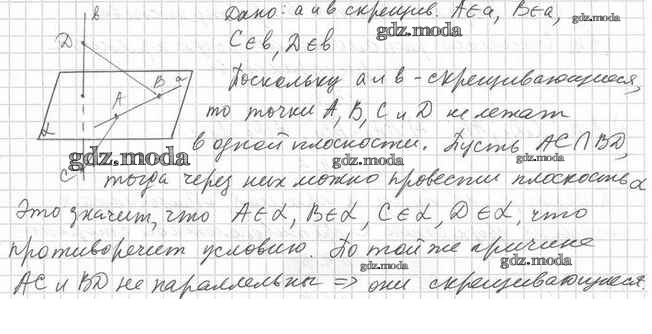 Дано: a и b скрещив. A∈a, B∈a,
C∈b, D∈b
Поскольку a и b - скрещивающиеся,
то точки A, B, C и D не лежат
в одной плоскости. Пусть AC∩BD,
тогда через них можно провести плоскость α
Это значит, что A∈α, B∈α, C∈α, D∈α, что
противоречит условию. По той же причине
AC и BD не параллельны => они скрещивающиеся.
b
D
B
a
A
α
C
gdz.moda
gdz.moda
gdz.moda
gdz.moda
gdz.moda
gdz.moda
gdz.moda
gdz.moda